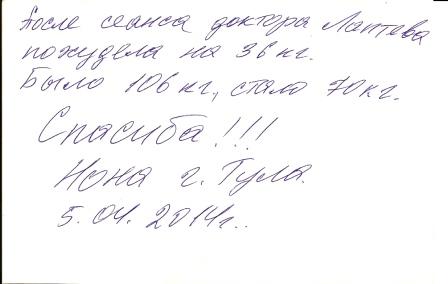 После сеанса доктора Лаптева
похудела на 36 кг.
Было 106 кг, стало 70 кг.
Спасиба!!!
Нона г. Тула.
5.04. 2014г..